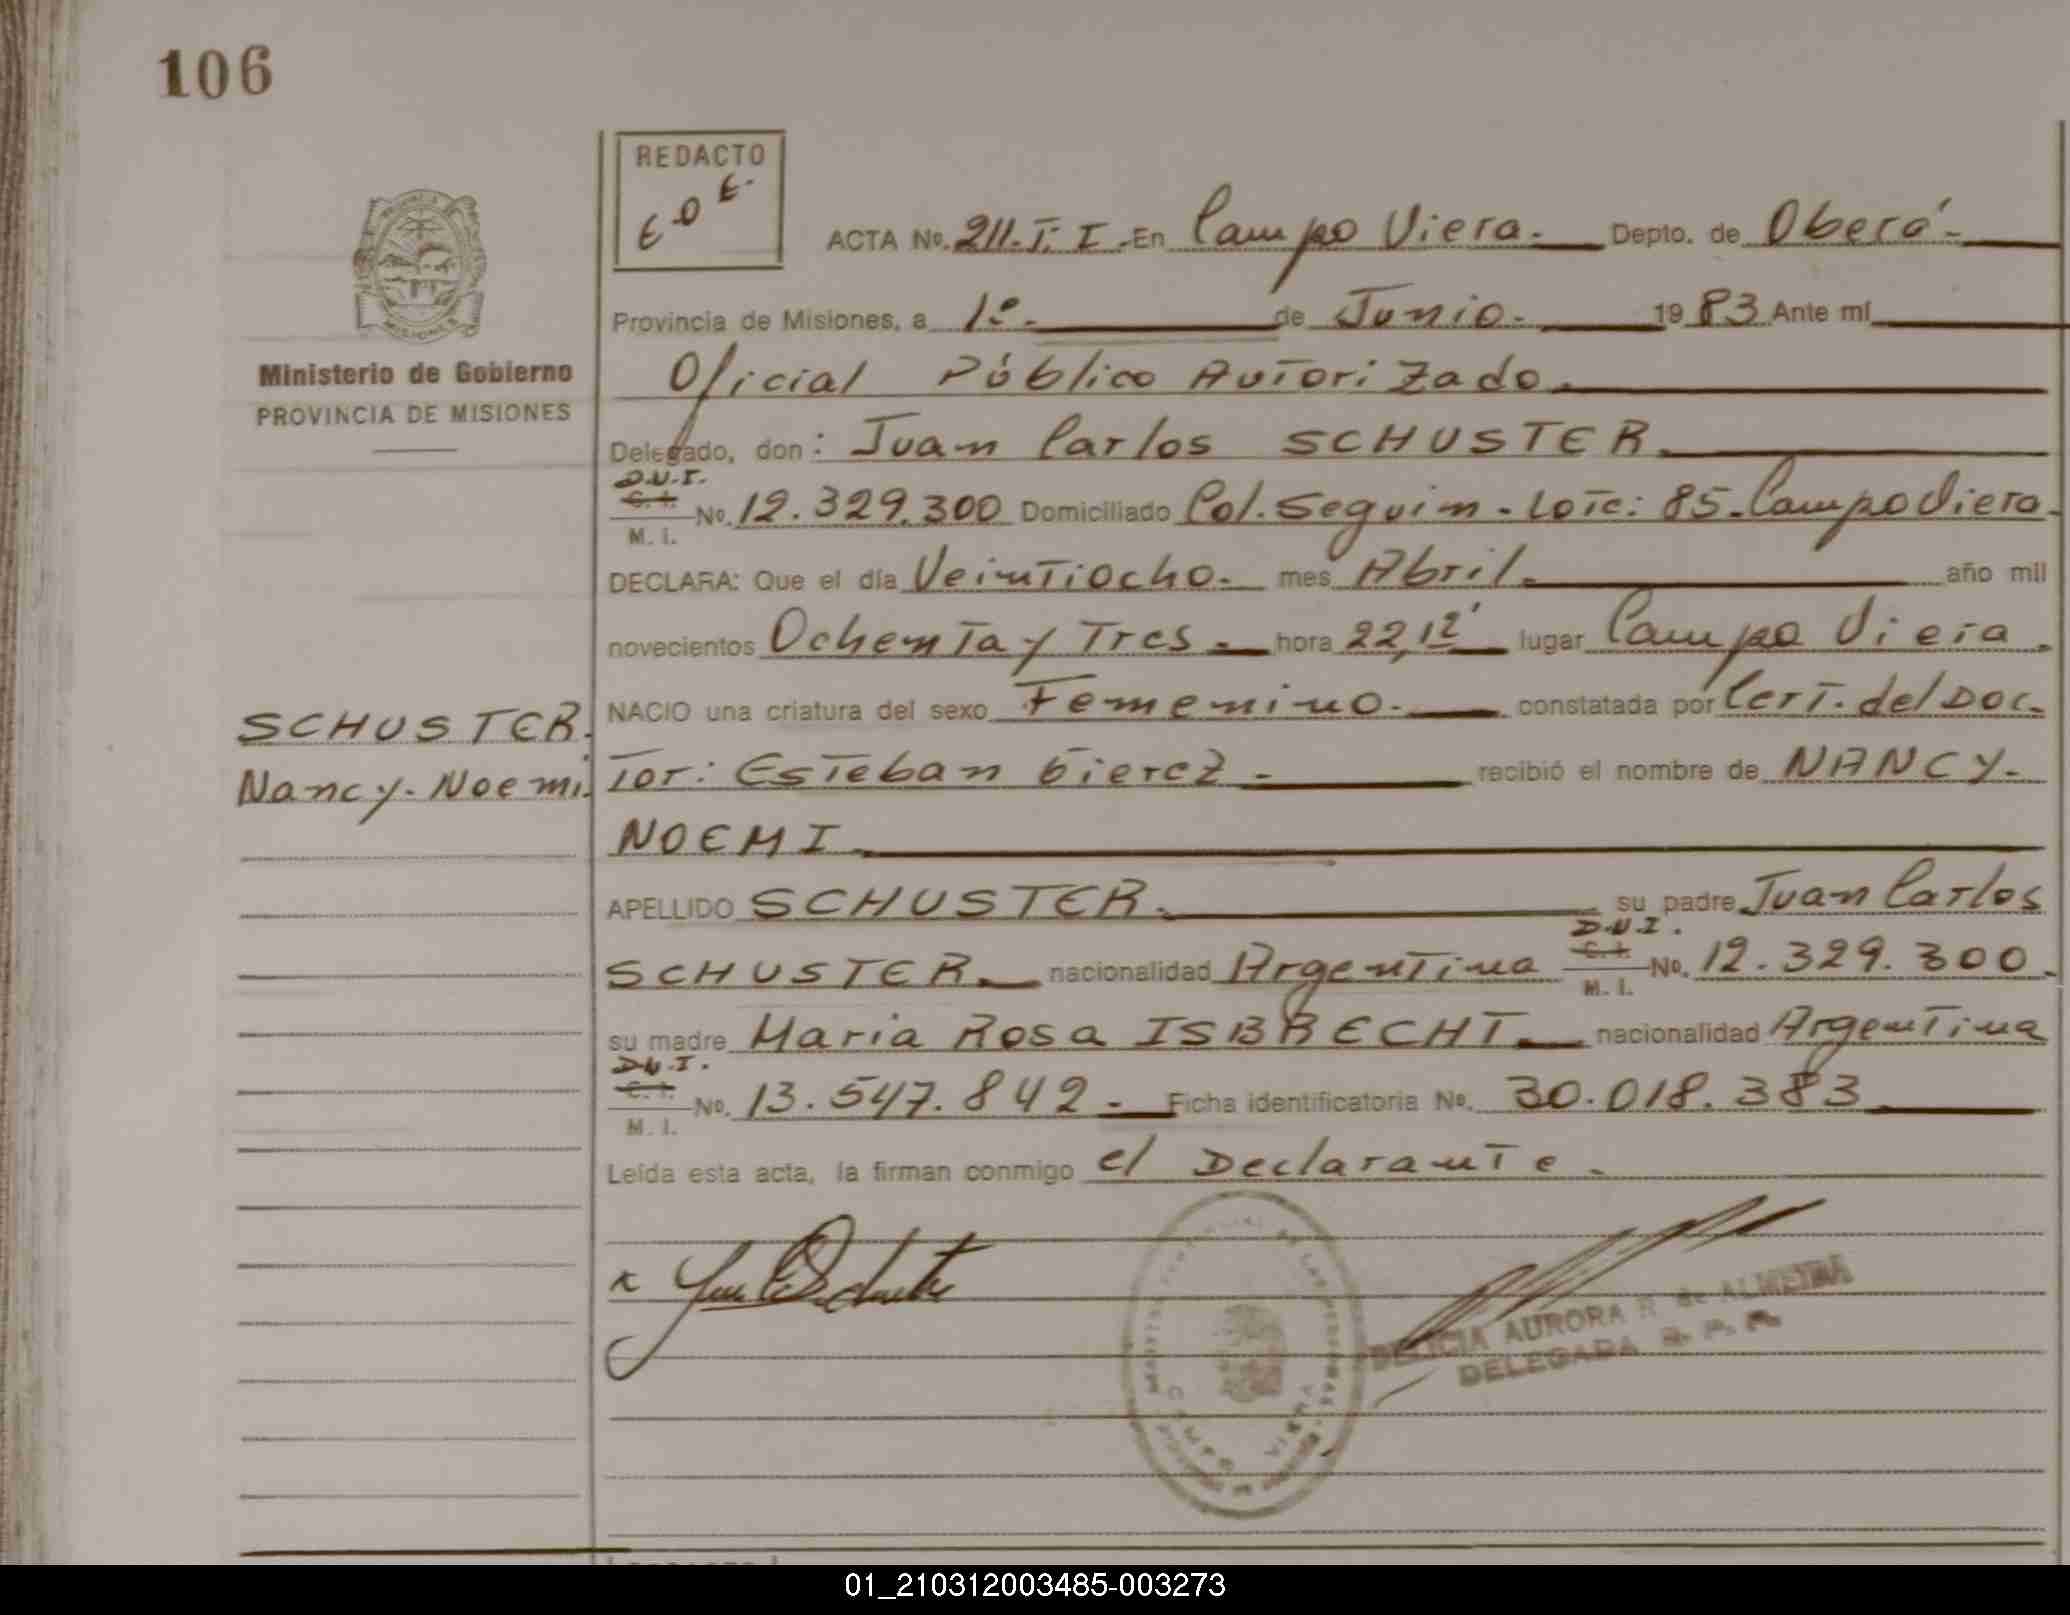 106
REDACTO
ACTA No. 211.T.I.-En Campo Viera.- Depto. de Oberá.-
Provincia de Misiones, a 1º.- de Junio.- 1983 Ante mí
Ministerio de Gobierno
PROVINCIA DE MISIONES
Oficial Público Autorizado.
Delegado, don: Juan Carlos SCHUSTER.
D.N.I.
C. I.
M. I.
No. 12.329.300 Domiciliado Col. Seguim.- Lote: 85.-Campo Viera.
DECLARA: Que el día Veintiocho.- mes Abril. año mil
novecientos Ochenta y Tres.- hora 22,12' lugar Campo Viera.
NACIO una criatura del sexo Femenino.- constatada por Cert. del Doc.
tor: Esteban Gierez.- recibió el nombre de NANCY.-
NOEMI.
SCHUSTER.
Nancy. Noemi.
APELLIDO SCHUSTER. su padre Juan Carlos
SCHUSTER.- nacionalidad Argentina D.N.I. C. I. M. I. No. 12.329.300.
su madre Maria Rosa ISBRECHT.- nacionalidad Argentina
D.N.I.
C. I.
M. I.
No. 13.547.842.- Ficha identificatoria No. 30.018.383
Leída esta acta, la firman conmigo el Declarante.
DELICIA AURORA R. de ALMEIDA
DELEGADA
CAMPO VIERA
MISIONES
01_210312003485-003273